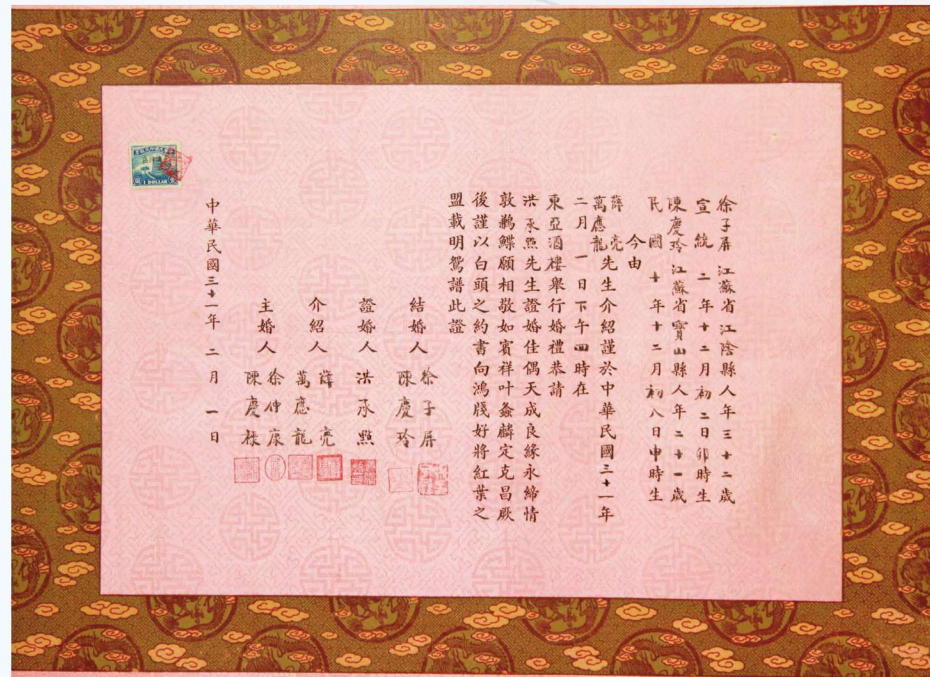 徐子屏 江蘇省江陰縣人年三十二歲
宣統二年十二月初二日卯時生
陳慶玲 江蘇省寶山縣人年二十一歲
民國十年十二月初八日申時生
今由
薛亮
萬應龍 先生介紹謹於中華民國三十一年
二月一日下午四時在
東亞酒樓舉行婚禮恭請
洪承熙先生證婚佳偶天成良緣永締情
敦鶼鰈願相敬如賓祥叶螽麟定克昌厥
後謹以白頭之約書向鴻牋好將紅葉之
盟載明鴛譜此證
結婚人 徐子屏
陳慶玲
證婚人 洪承熙
介紹人 薛亮
萬應龍
主婚人 徐仲康
陳慶祿
中華民國三十一年二月一日
1 DOLLAR